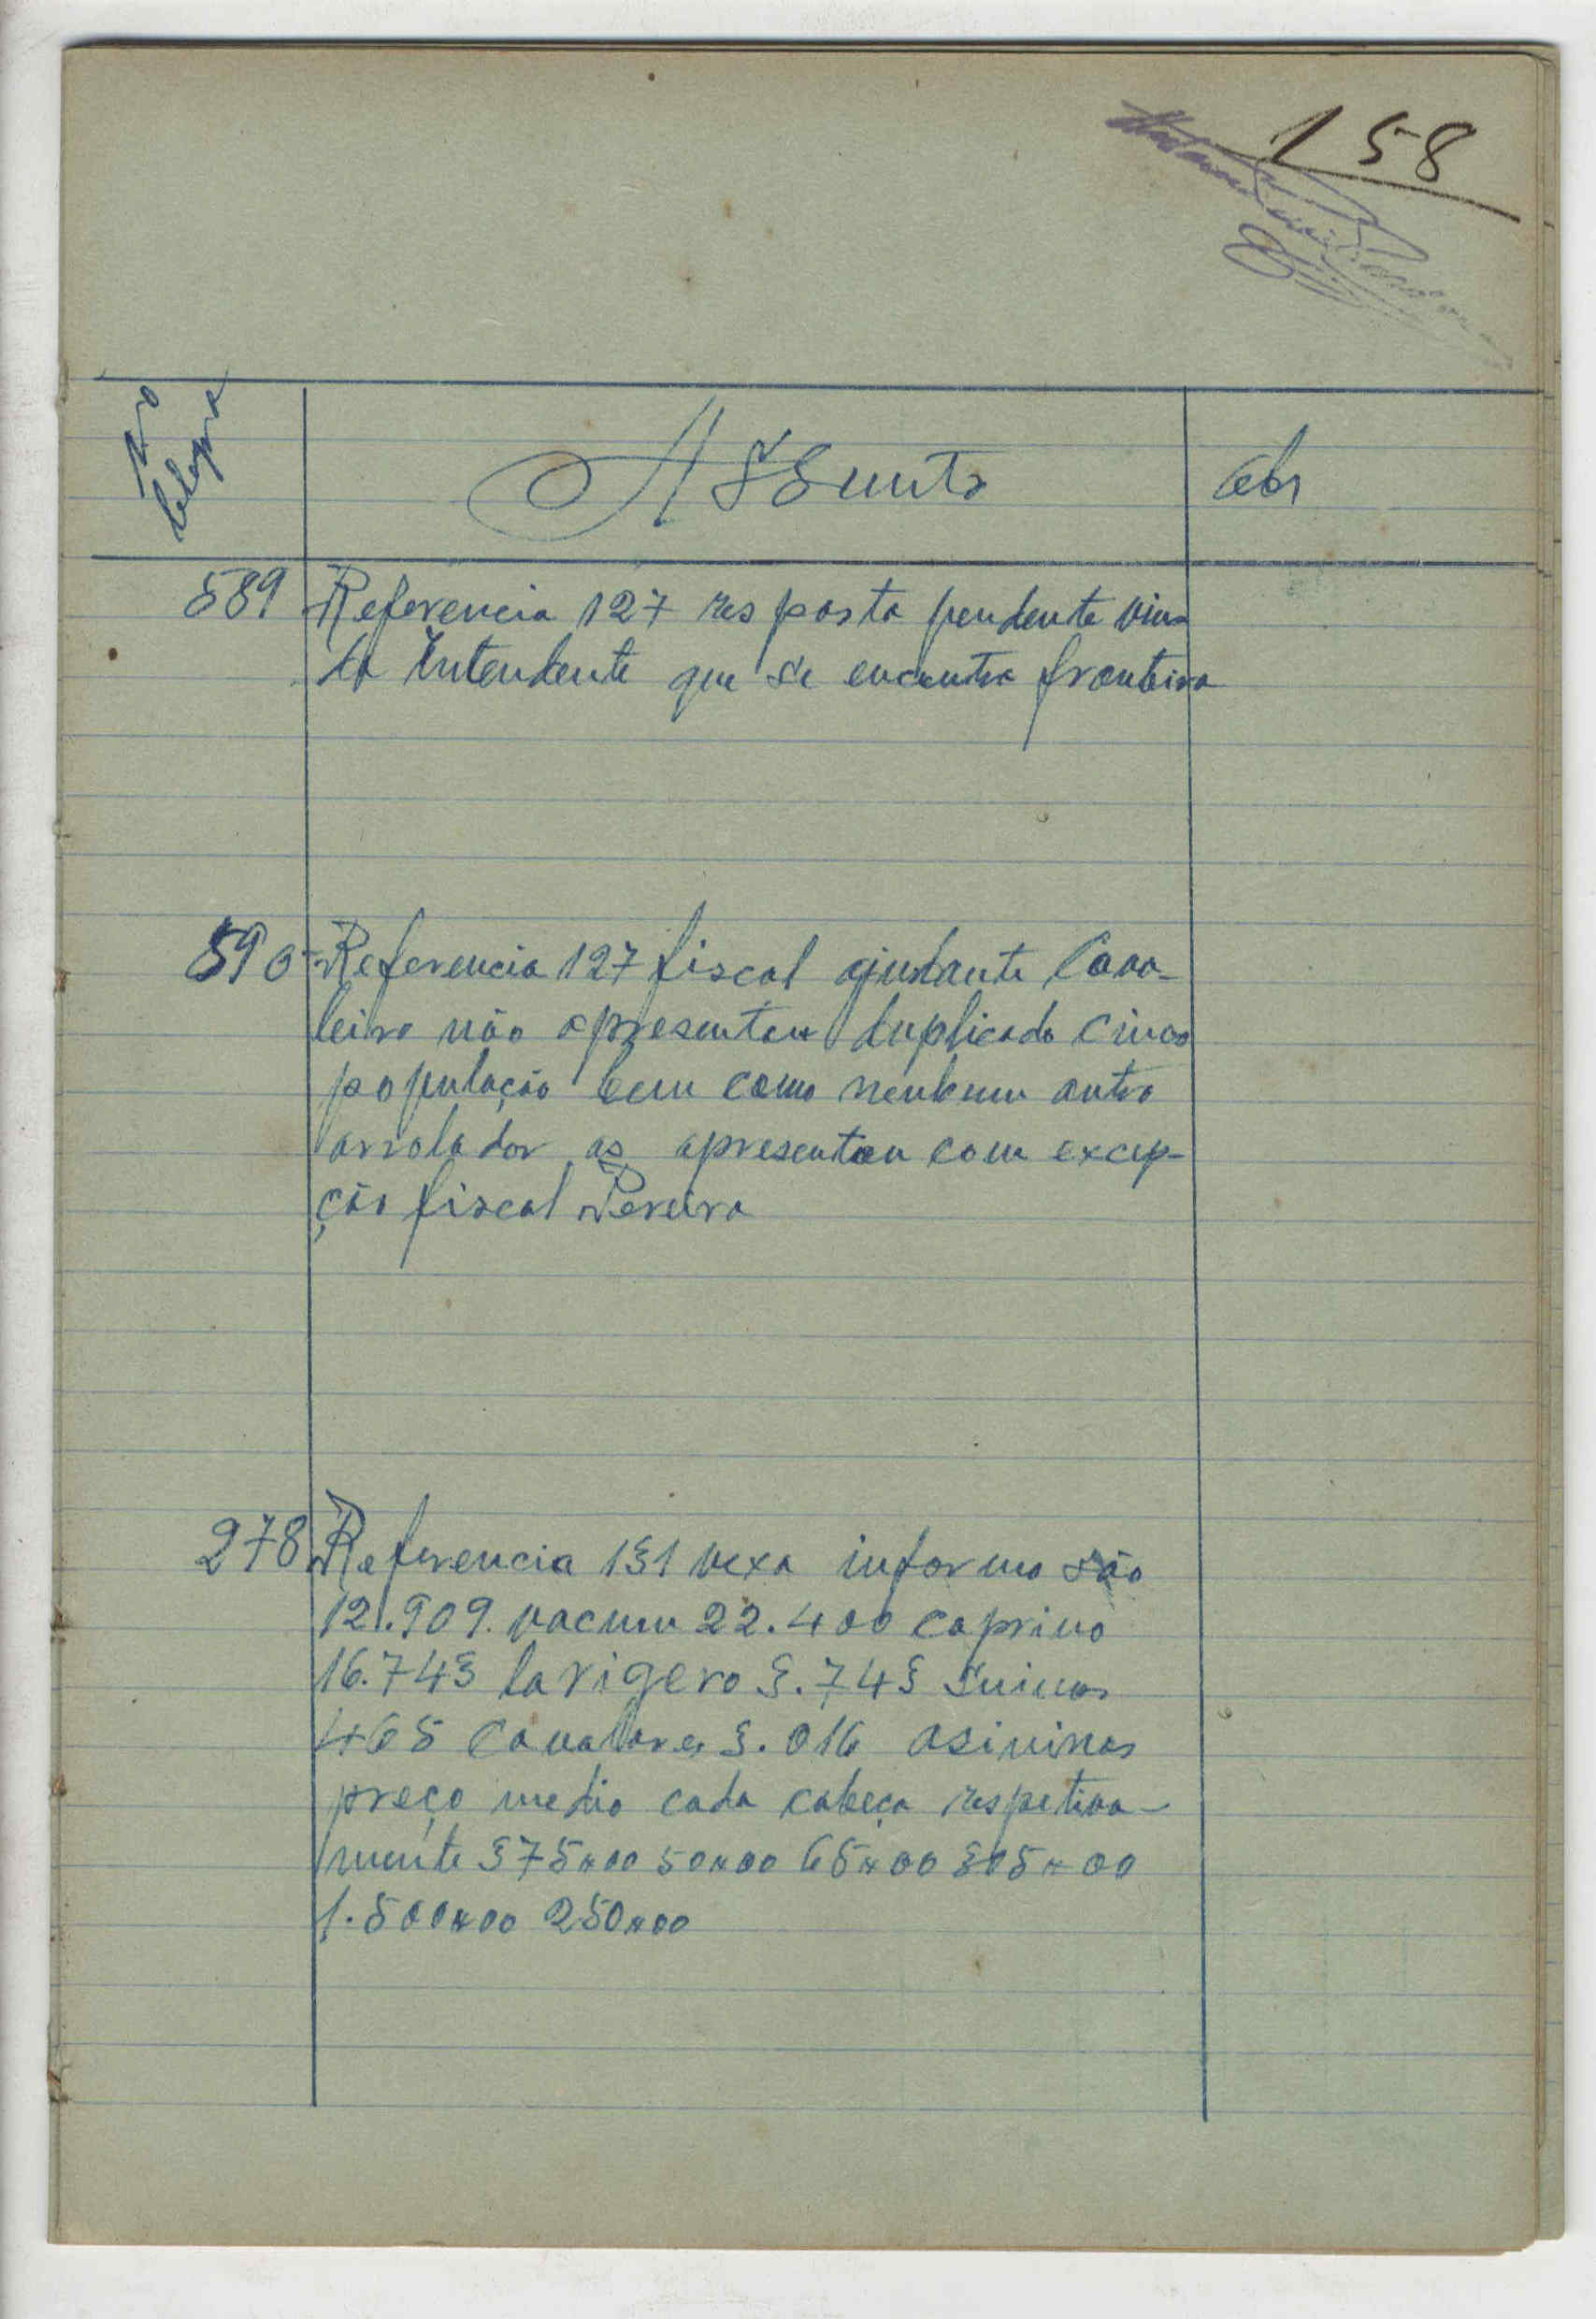 158
No telegra
Assunto
Obs
589 Referencia 127 resposta pendente vin-
da Intendente que se encontra fronteira
590 Referencia 127 fiscal ajudante Cava-
leiro não apresentou duplicado cinco
população bem como nenhum outro
arrolador as apresentou com excep-
ção fiscal Pereira
278 Referencia 131 vexa informo são
12.909. vacum 22.400 caprino
16.743 lanigero 3.743 suinos
465 cavalares 3.016 asininos
preço medio cada cabeça respetiva-
mente 375$00 50$00 65$00 305$00
1.500$00 250$00